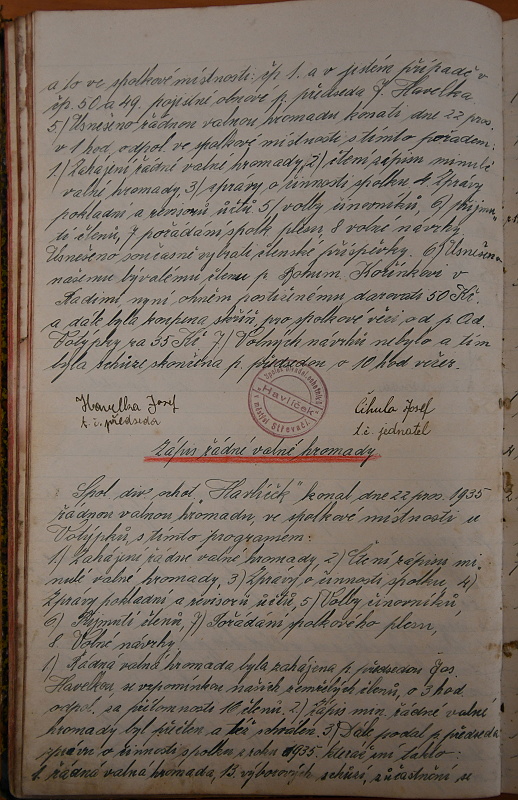 a to ve spolkové místnosti: čp 1. a v jistém případě v
čp. 50 a 49. pojistní obnově p. předseda J. Havelka.
5.) Usneseno řádnou valnou hromadu konati dne 22 pros.
v 1 hod. odpol. ve spolkové místnosti s tímto pořadem:
1.) Zahájení řádné valné hromady, 2) čtení zápisu minulé
valné hromady, 3) zprávy o činnosti spolku 4. Zprávy
pokladní a revisorů účtů 5) volby činovníků, 6) přijmu-
tí členů, 7 pořádání spolk. plesu, 8 volné návrhy.
Usneseno současně vybrati členské příspěvky. 6) Usneseno
našemu bývalému členu p. Bohum. Kořínkovi v
Radimi nyní ohněm postiženému darovati 50 Kč.
a dále byla koupena skříň pro spolkové věci od p. Ad.
Votypky za 35 Kč 7.) Volných návrhů nebylo a tím
byla schůze skončena p. předsedou o 10 hod večer.
Havelka Josef
t. č. předseda
"Havlíček"
Cihula Josef
t. č. jednatel
Zápis řádné valné hromady
Spol. div. ochot. "Havlíček" konal dne 22 pros. 1935
řádnou valnou hromadu ve spolkové místnosti u
Votypků s tímto programem:
1.) Zahájení řádné valné hromady, 2.) Čtení zápisu mi-
nulé valné hromady, 3) Zprávy o činnosti spolku, 4)
Zprávy pokladní a revisorů účtů, 5) Volby činovníků,
6) Přijmutí členů, 7) Pořádání spolkového plesu,
8 Volné návrhy.
1) Řádná valná hromada byla zahájena p. předsedou Jos.
Havelkou, se vzpomínkou našich zemřelých členů, o 3 hod
odpol. za přítomnosti 18 členů. 2.) Zápis min. řádné valné
hromady byl přečten a též schválen. 3) Dále podal p. předseda
zprávu o činnosti spolku z roku 1935. která zní takto:
1. řádná valná hromada, 13. výborových schůzí, súčastnění se